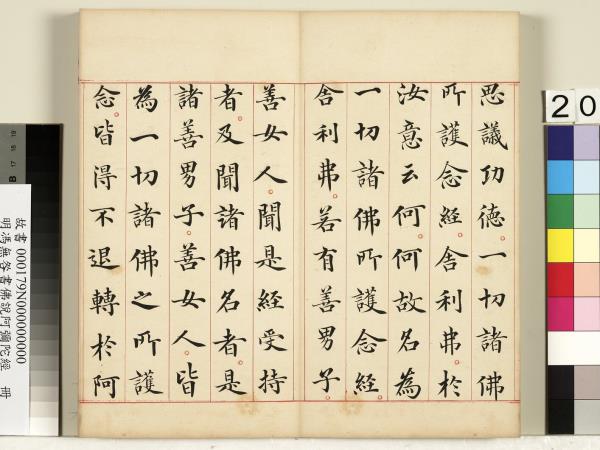 思議功德。一切諸佛
所護念經。舍利弗。於
汝意云何。何故名為
一切諸佛所護念經。
舍利弗。若有善男子。
善女人。聞是經受持
者。及聞諸佛名者。是
諸善男子。善女人。皆
為一切諸佛之所護
念。皆得不退轉於阿
20
故書 000179N000000000
明馮無咎書佛說阿彌陀經 冊